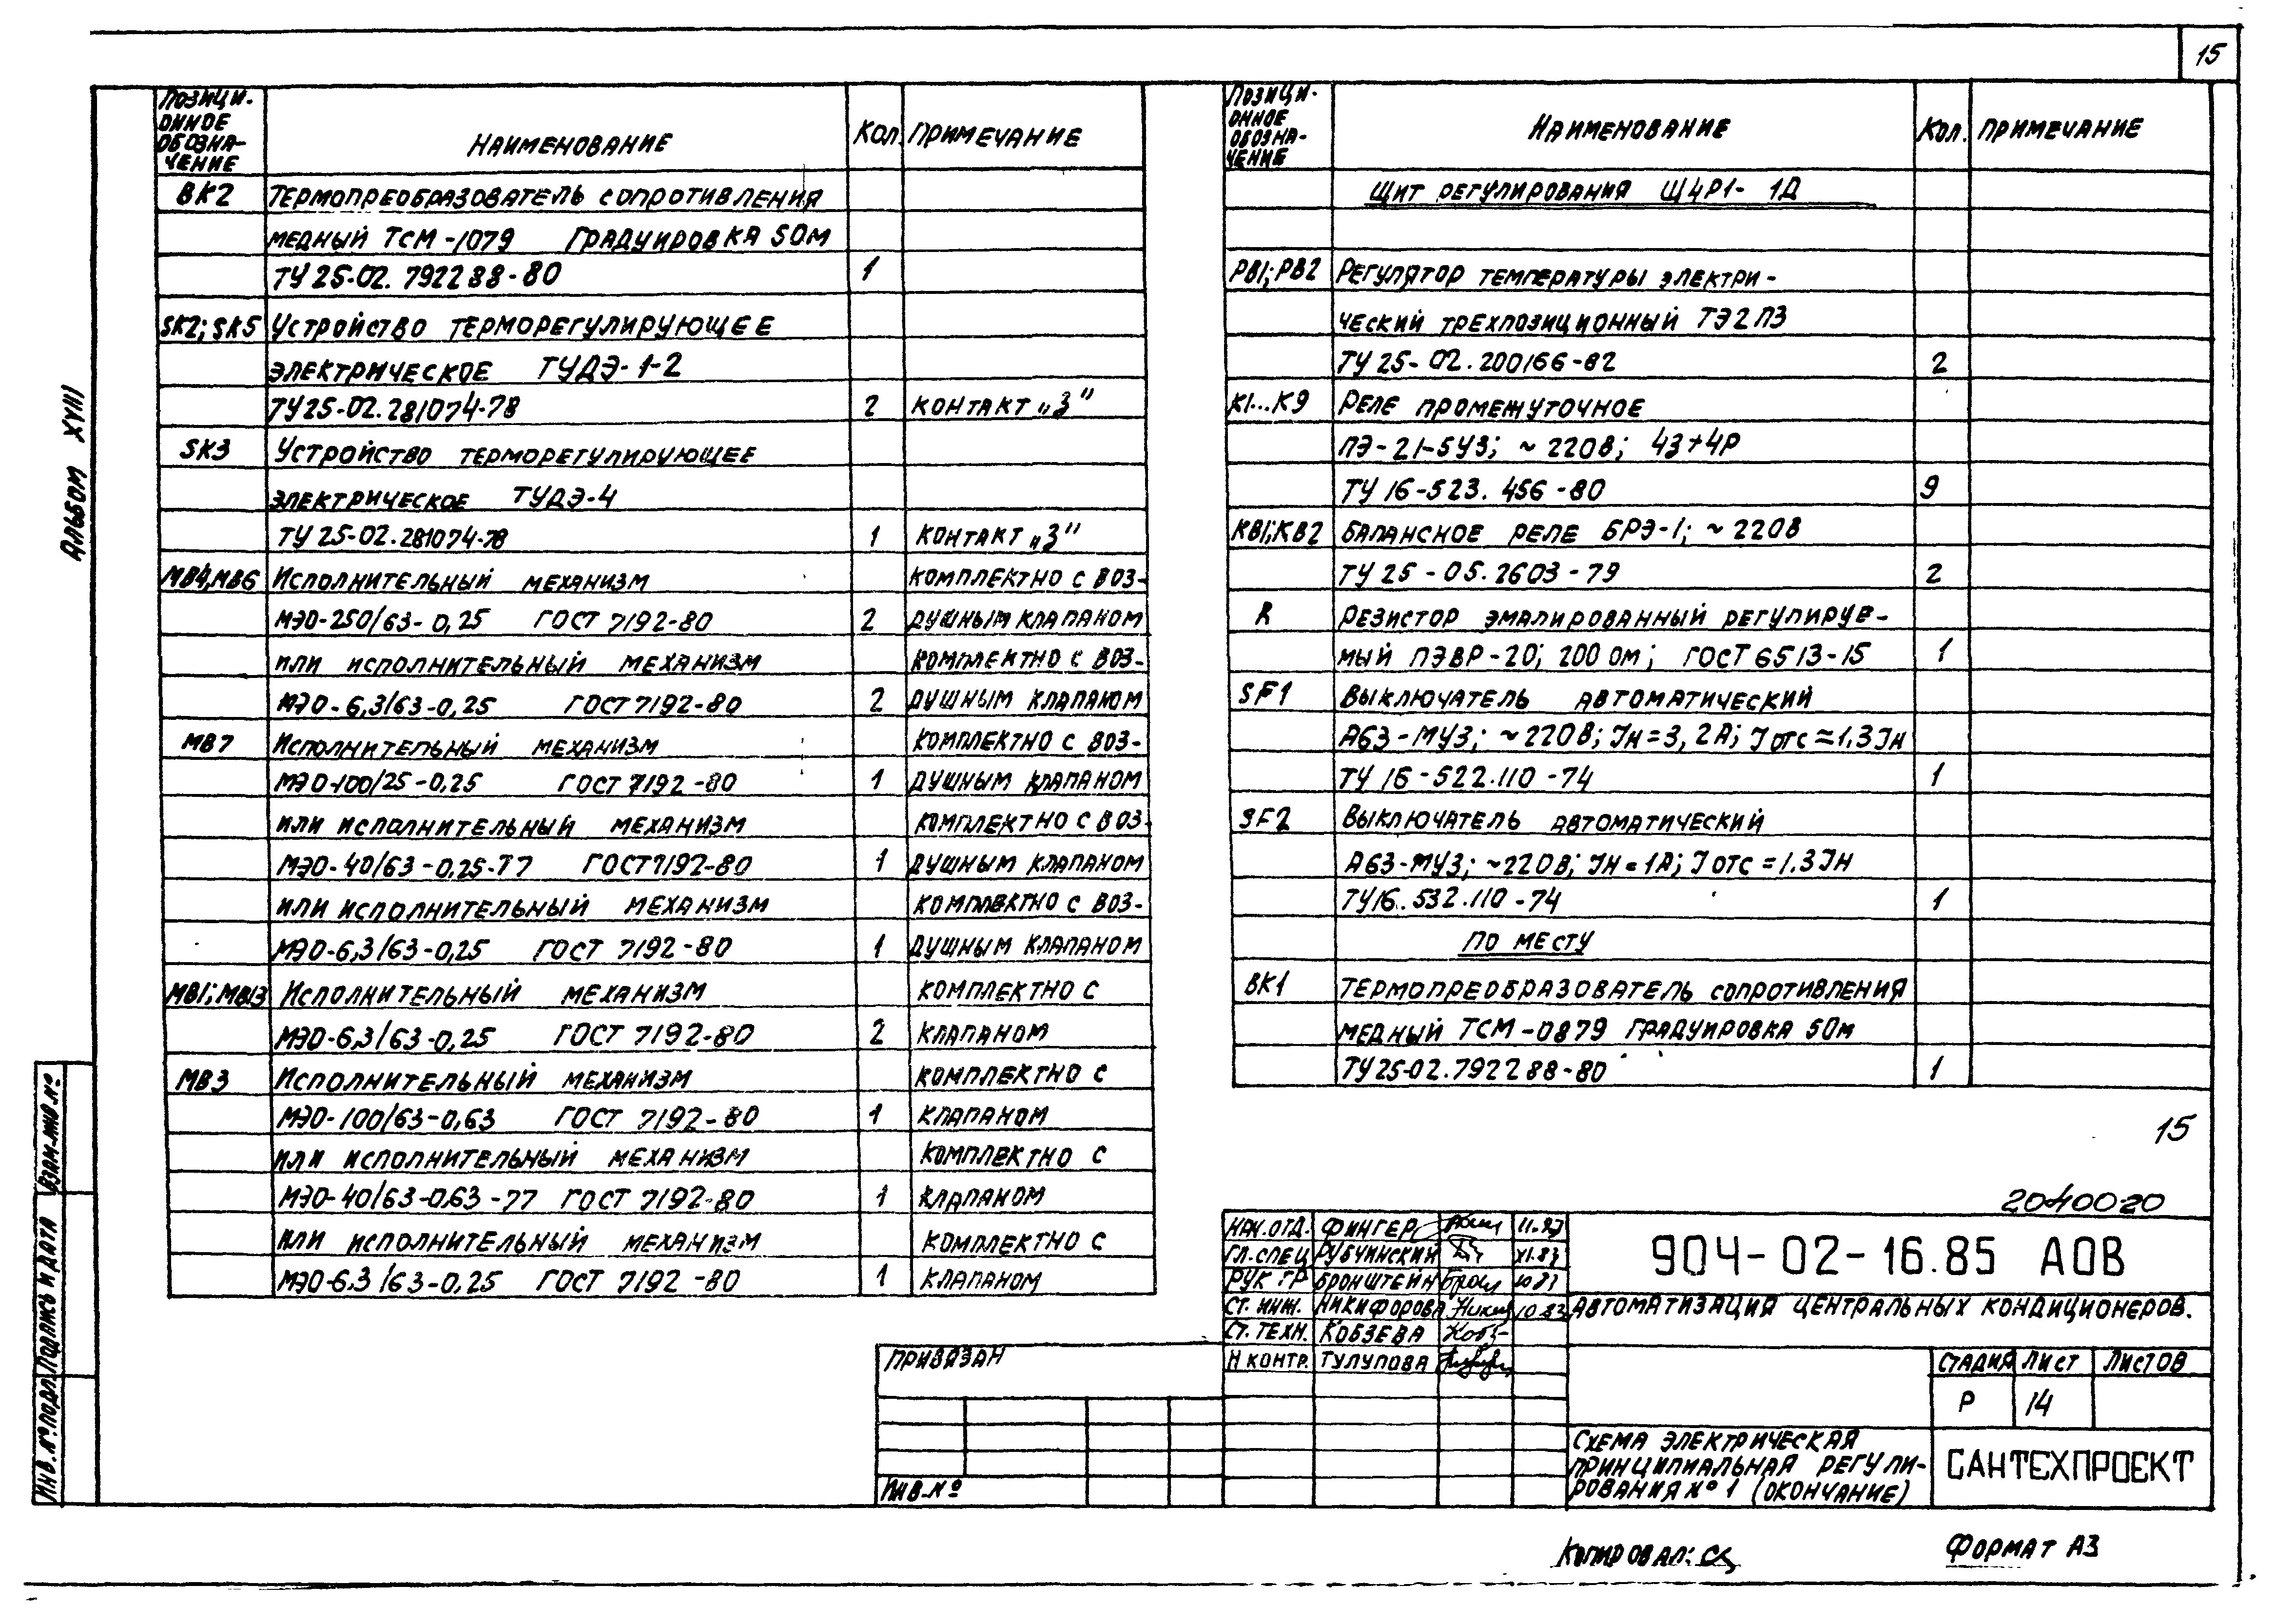 15
Альбом XVIII
Позици-
онное
обозна-
чение
Наименование
Кол.
Примечание
ВК2 Термопреобразователь сопротивления
медный ТСМ-1079 градуировка 50м
ТУ 25-02.792288-80 1
SK2; SK5 Устройство терморегулирующее
электрическое ТУДЭ-1-2
ТУ25-02.281074-78 2 контакт „З"
SK3 Устройство терморегулирующее
электрическое ТУДЭ-4
ТУ 25-02.281074-78 1 контакт „З"
МВ4,МВ6 Исполнительный механизм комплектно с воз-
МЭО-250/63-0,25 ГОСТ 7192-80 2 душным клапаном
или исполнительный механизм комплектно с воз-
МЭО-6,3/63-0,25 ГОСТ 7192-80 2 душным клапаном
МВ7 Исполнительный механизм комплектно с воз-
МЭО-100/25-0,25 ГОСТ 7192-80 1 душным клапаном
или исполнительный механизм комплектно с воз-
МЭО-40/63-0,25-77 ГОСТ 7192-80 1 душным клапаном
или исполнительный механизм комплектно с воз-
МЭО-6,3/63-0,25 ГОСТ 7192-80 1 душным клапаном
МВ1; МВ13 Исполнительный механизм комплектно с
МЭО-6,3/63-0,25 ГОСТ 7192-80 2 клапаном
МВ3 Исполнительный механизм комплектно с
МЭО-100/63-0,63 ГОСТ 7192-80 1 клапаном
или исполнительный механизм комплектно с
МЭО-40/63-0,63-77 ГОСТ 7192-80 1 клапаном
или исполнительный механизм комплектно с
МЭО-6.3/63-0,25 ГОСТ 7192-80 1 клапаном
Позици-
онное
обозна-
чение
Наименование
Кол.
Примечание
Щит регулирования Щ4Р1-1Д
РВ1; РВ2 Регулятор температуры электри-
ческий трехпозиционный ТЭ2П3
ТУ 25-02.200166-82 2
К1...К9 Реле промежуточное
ПЭ-21-5У3; ~220В; 4з+4р
ТУ 16-523.456-80 9
КВ1; КВ2 Балансное реле БРЭ-1; ~220В
ТУ 25-05.2603-79 2
R Резистор эмалированный регулируе-
мый ПЭВР-20; 200 Ом; ГОСТ 6513-15 1
SF1 Выключатель автоматический
А63-МУ3; ~220В; Iн=3,2А; Iотс=1.3Iн
ТУ 16-522.110-74 1
SF2 Выключатель автоматический
А63-МУ3; ~220В; Iн=1А; Iотс=1.3Iн
ТУ16.532.110-74 1
По месту
ВК1 Термопреобразователь сопротивления
медный ТСМ-0879 градуировка 50м
ТУ25-02.792288-80 1
15
20400-20
Нач.отд. Фингер 11.83
Гл.спец Рубчинский XI.83
Рук гр Бронштейн 10 83
Ст. инж. Никифорова 10.83
Ст. техн. Кобзева
Н контр. Тулупова
904-02-16.85 АОВ
Автоматизация центральных кондиционеров.
Стадия Лист Листов
Р 14
Схема электрическая
принципиальная регули-
рования №1 (окончание)
САНТЕХПРОЕКТ
Привязан
Инв.№
Взам.инв.№
Подпись и дата
Инв.№ подл.
Копировал:
Формат А3